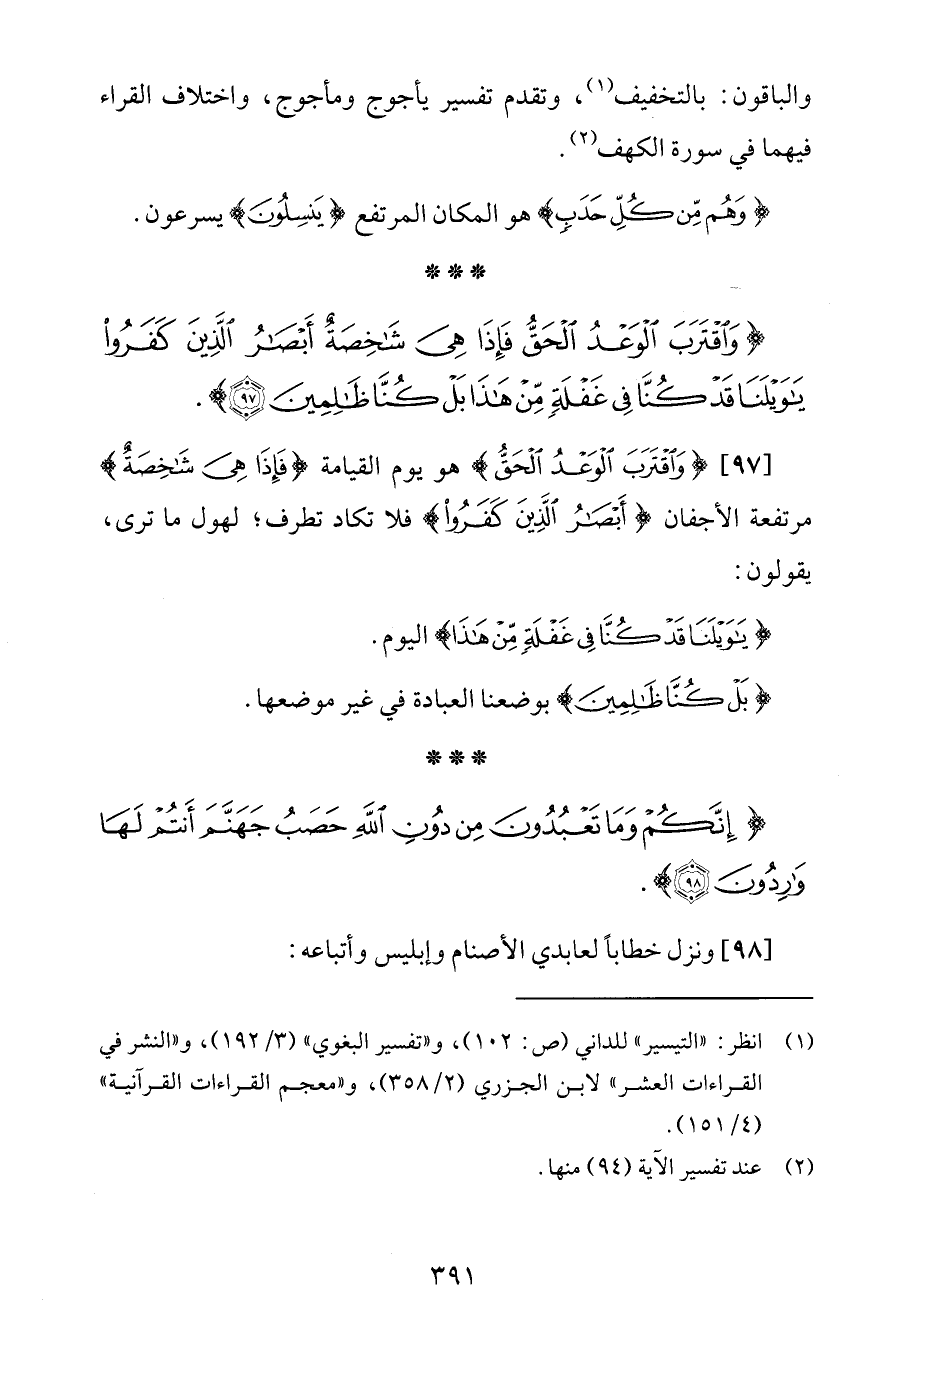 والباقون: بالتخفيف(١)، وتقدم تفسير يأجوج ومأجوج، واختلاف القراء
فيهما في سورة الكهف(٢).
﴿وَهُم مِّن كُلِّ حَدَبٍ﴾ هو المكان المرتفع ﴿يَنسِلُونَ﴾ يسرعون.
***
﴿وَٱقْتَرَبَ ٱلْوَعْدُ ٱلْحَقُّ فَإِذَا هِىَ شَـٰخِصَةٌ أَبْصَـٰرُ ٱلَّذِينَ كَفَرُوا۟
يَـٰوَيْلَنَا قَدْ كُنَّا فِى غَفْلَةٍ مِّنْ هَـٰذَا بَلْ كُنَّا ظَـٰلِمِينَ ٩٧﴾.
[٩٧] ﴿وَٱقْتَرَبَ ٱلْوَعْدُ ٱلْحَقُّ﴾ هو يوم القيامة ﴿فَإِذَا هِىَ شَـٰخِصَةٌ﴾
مرتفعة الأجفان ﴿أَبْصَـٰرُ ٱلَّذِينَ كَفَرُوا۟﴾ فلا تكاد تطرف؛ لهول ما ترى،
يقولون:
﴿يَـٰوَيْلَنَا قَدْ كُنَّا فِى غَفْلَةٍ مِّنْ هَـٰذَا﴾ اليوم.
﴿بَلْ كُنَّا ظَـٰلِمِينَ﴾ بوضعنا العبادة في غير موضعها.
***
﴿إِنَّكُمْ وَمَا تَعْبُدُونَ مِن دُونِ ٱللَّهِ حَصَبُ جَهَنَّمَ أَنتُمْ لَهَا
وَٰرِدُونَ ٩٨﴾.
[٩٨] ونزل خطاباً لعابدي الأصنام وإبليس وأتباعه:
(١) انظر: «التيسير» للداني (ص: ١٠٢)، و«تفسير البغوي» (٣/ ١٩٢)، و«النشر في
القراءات العشر» لابن الجزري (٢/ ٣٥٨)، و«معجم القراءات القرآنية»
(٤/ ١٥١).
(٢) عند تفسير الآية (٩٤) منها.
٣٩١